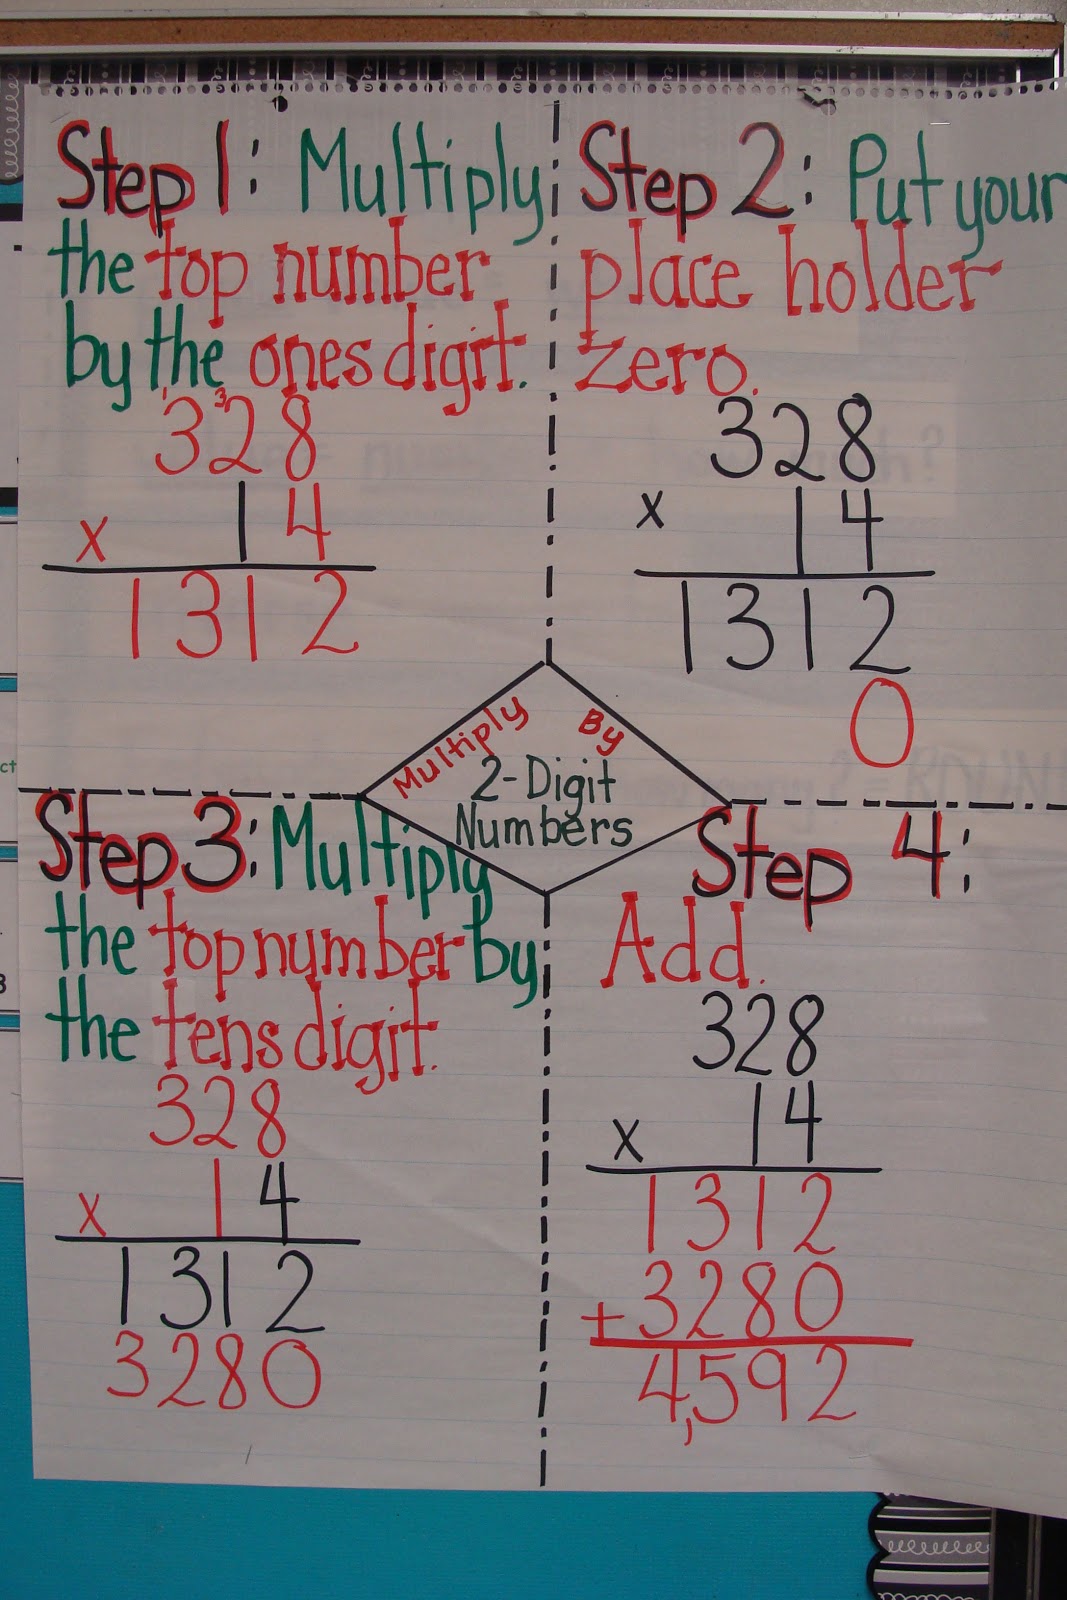 Step 1: Multiply
the top number
by the ones digit.
1 3
328
x 14
1312
Step 2: Put your
place holder
zero.
328
x 14
1312
0
Multiply By
2-Digit
Numbers
Step 3: Multiply
the top number by
the tens digit.
328
x 14
1312
3280
Step 4:
Add.
328
x 14
1312
+ 3280
4,592